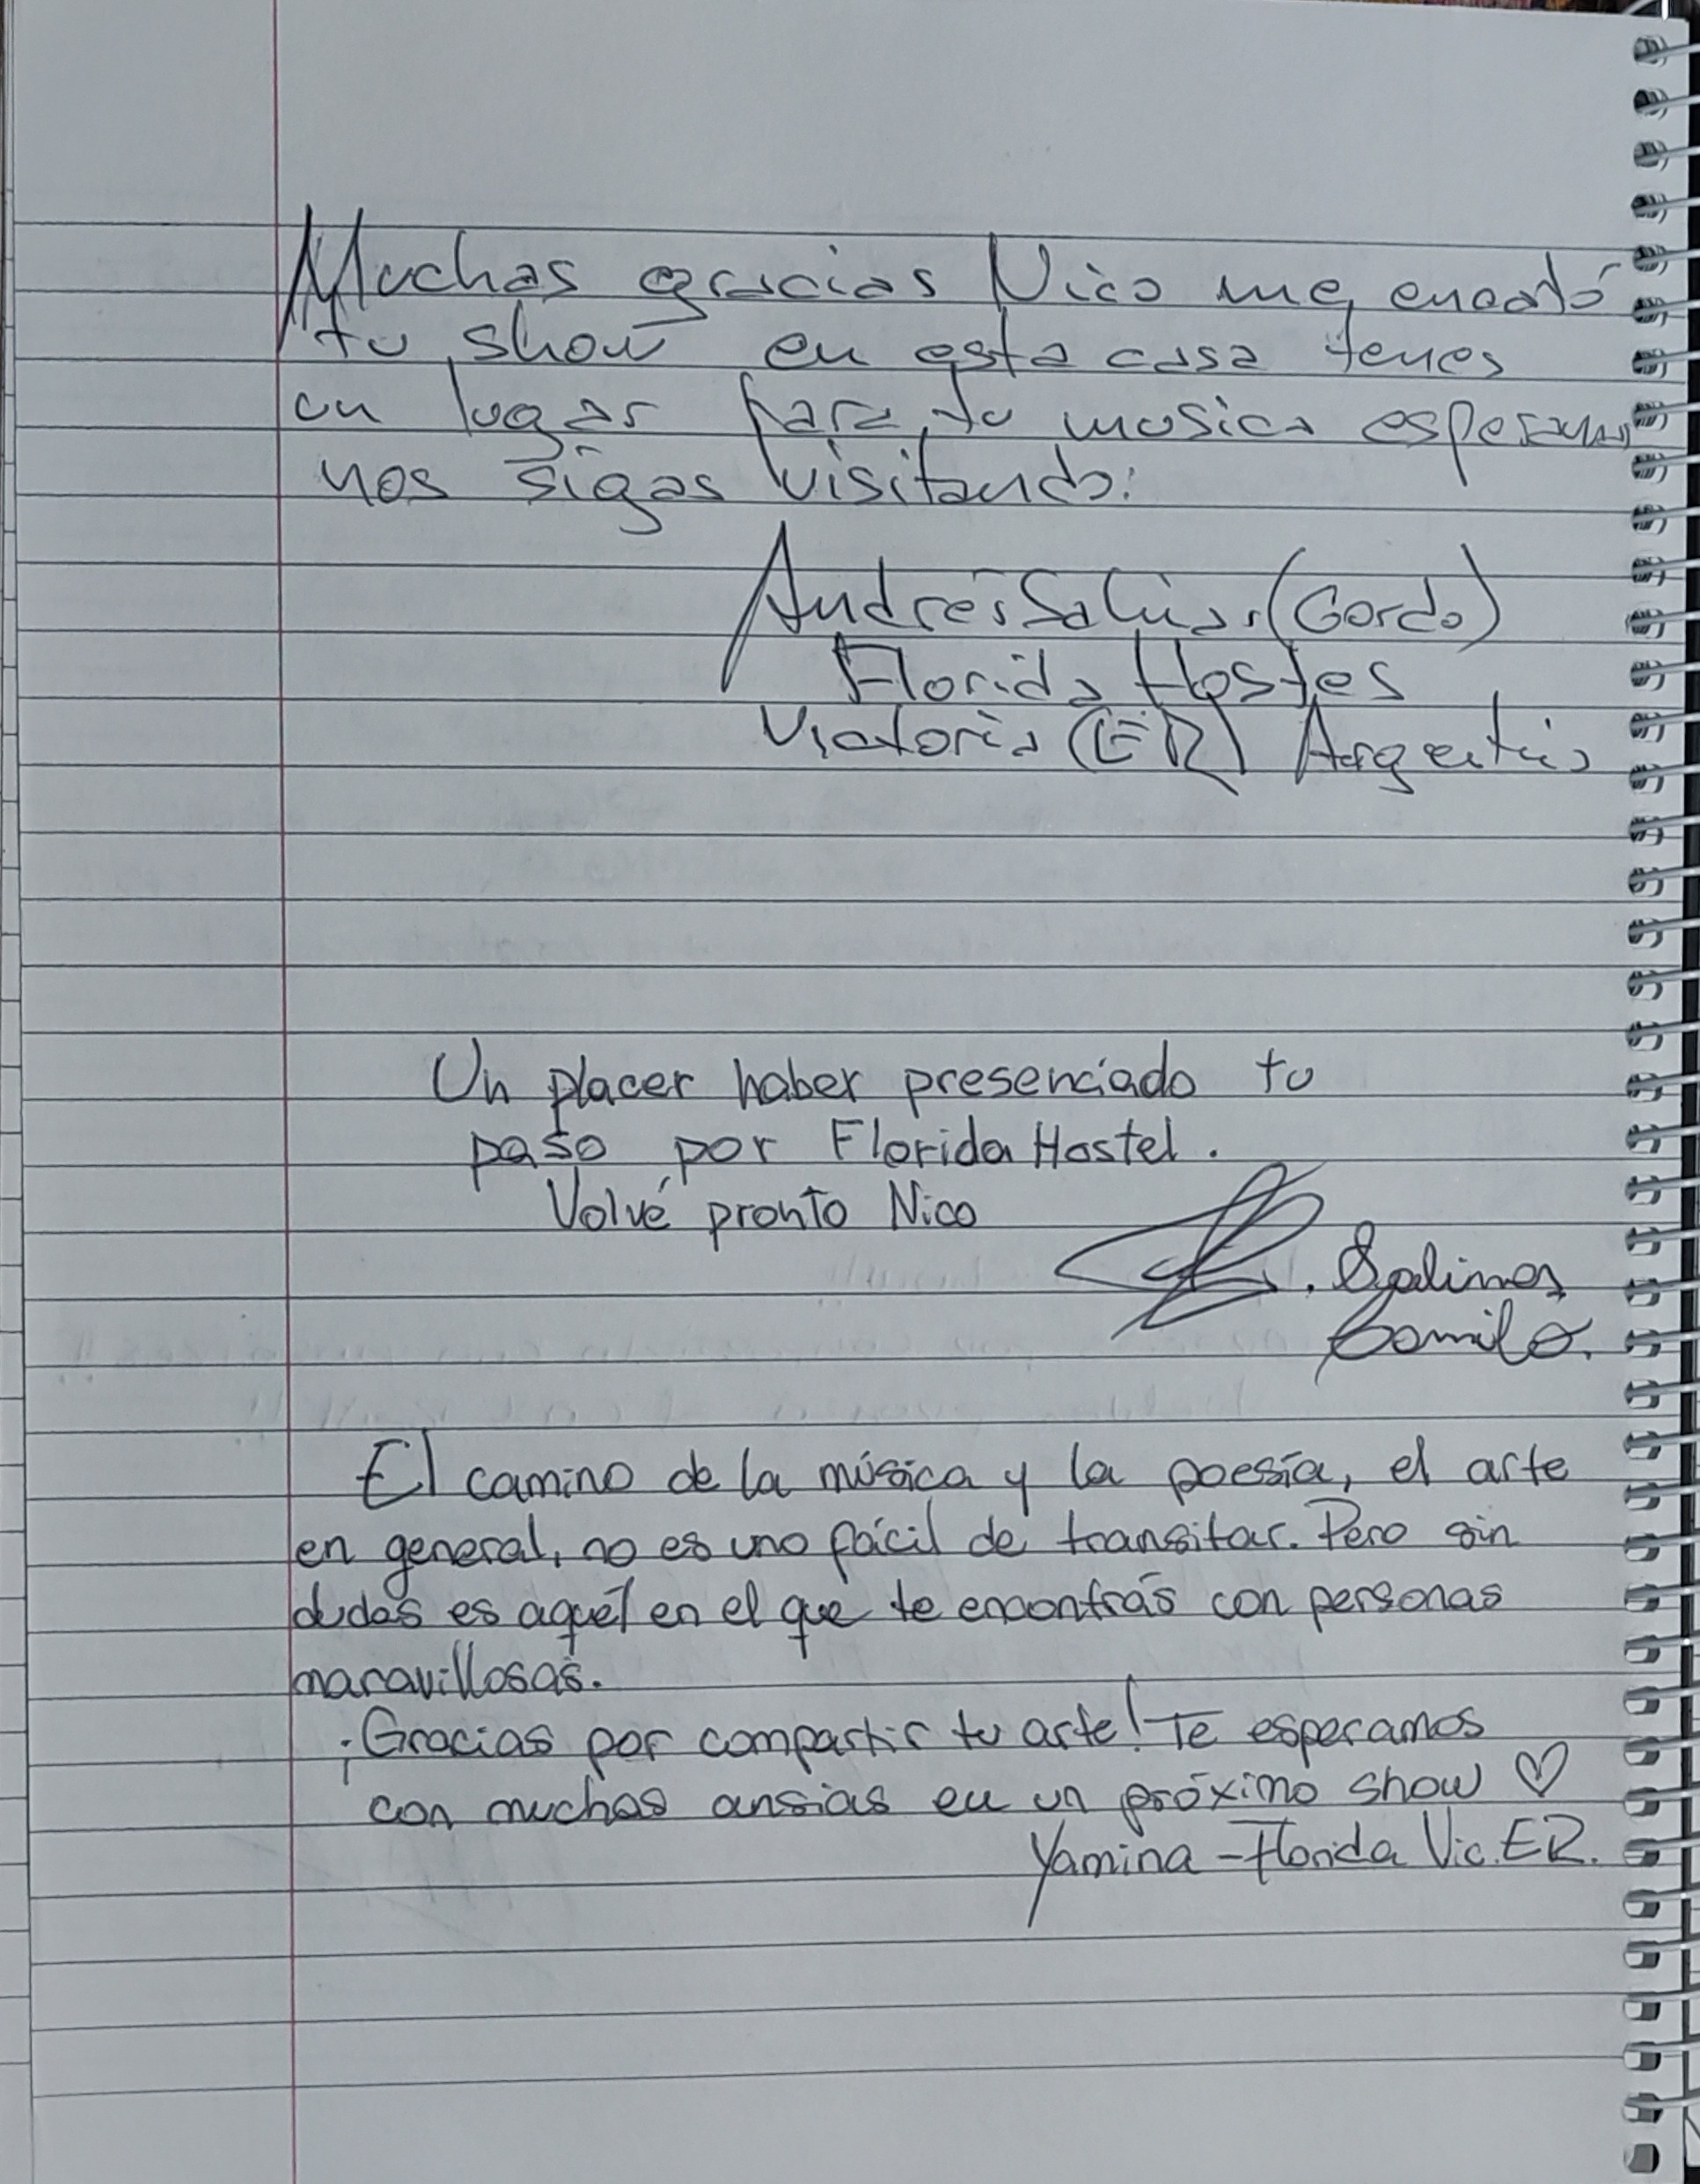 Muchas gracias Nico me encató
tu show en esta casa tenes
un lugar para tu musica esperamos
nos sigas visitando:
Andrés Salinas (Gordo)
Florida Hostes
Victoria (ER) Argentina
Un placer haber presenciado tu
paso por Florida Hostel.
Volvé pronto Nico
Salinas
Camilo.
El camino de la música y la poesía, el arte
en general, no es uno fácil de transitar. Pero sin
dudas es aquél en el que te encontrás con personas
maravillosas.
¡Gracias por compartir tu arte! Te esperamos
con muchas ansias en un próximo show ♡
Yamina - Florida Vic. ER.